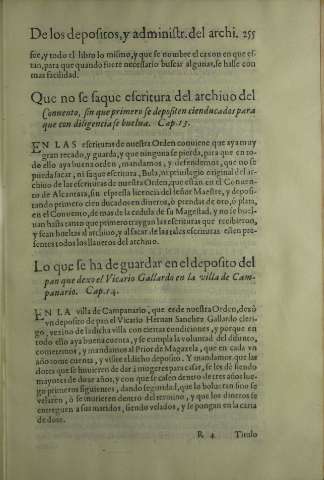 De los depositos, y administr. del archi. 255
sse, y todo el libro lo mismo, y que se nombre el caxon en que es-
tan, para que quando fuere necessario buscar algunas, se halle con
mas facilidad.
Que no se saque escritura del archiuo del
Conuento, sin que primero se depositen cien ducados para
que con diligencia se buelua. Cap. 13.
EN LAS escrituras de nuestra Orden conuiene que aya muy
gran recado, y guarda, y que ninguna se pierda, para que en to-
do ello aya buena orden, mandamos, y defendemos, que no se
pueda sacar, ni saque escritura, Bula, ni priuilegio original del ar-
chiuo de las escrituras de nuestra Orden, que estan en el Conuen-
to de Alcantara, sin especial licencia del señor Maestre, y deposi-
tando primero cien ducados en dineros, ò prendas de oro, ò plata,
en el Conuento, de mas de la cedula de su Magestad, y no se buel-
uan hasta tanto que primero traygan las escrituras que recibieron,
y sean bueltas al archiuo, y al sacar de las tales escrituras esten pre-
sentes todos los llaueros del archiuo.
Lo que se ha de guardar en el deposito del
pan que dexo el Vicario Gallardo en la villa de Cam-
panario. Cap. 14.
EN LA villa de Campanario, que es de nuestra Orden, dexò
vn deposito de pan el Vicario Hernan Sanchez Gallardo cleri-
go, vezino de la dicha villa con ciertas condiciones, y porque en
todo ello aya buena cuenta, y se cumpla la voluntad del difunto,
cometemos, y mandamos al Prior de Magazela, que en cada vn
año tome cuenta, y visite el dicho deposito. Y mandamos que las
dotes que se huuieren de dar à mugeres para casar, se les dè siendo
mayores de doze años, y con que se casen dentro de tres años lue-
go primeros siguientes, dando seguridad, que lo bolueran sino se
velaren, ò se murieren dentro del termino, y que los dineros se
entreguen a sus maridos, siendo velados, y se pongan en la carta
de dote.
R 4 Titulo